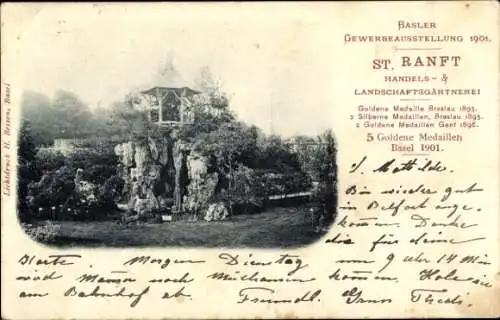 BASLER
GEWERBEAUSSTELLUNG 1901.
ST. RANFT
HANDELS- &
LANDSCHAFTSGÄRTNEREI
Goldene Medaille Breslau 1893.
2 Silberne Medaillen, Breslau 1893.
2 Goldene Medaillen Genf 1896.
5 Goldene Medaillen
Basel 1901.
Lichtdruck H. Besson, Basel
L. Mathilde.
Bin wieder gut
in Belfort ange
komm. Danke
dir für deine
Karte Morgen Dienstag komm 9 Uhr 14 Min
wird Mama nach München kommen Hole sie
am Bahnhof ab. Freundl.